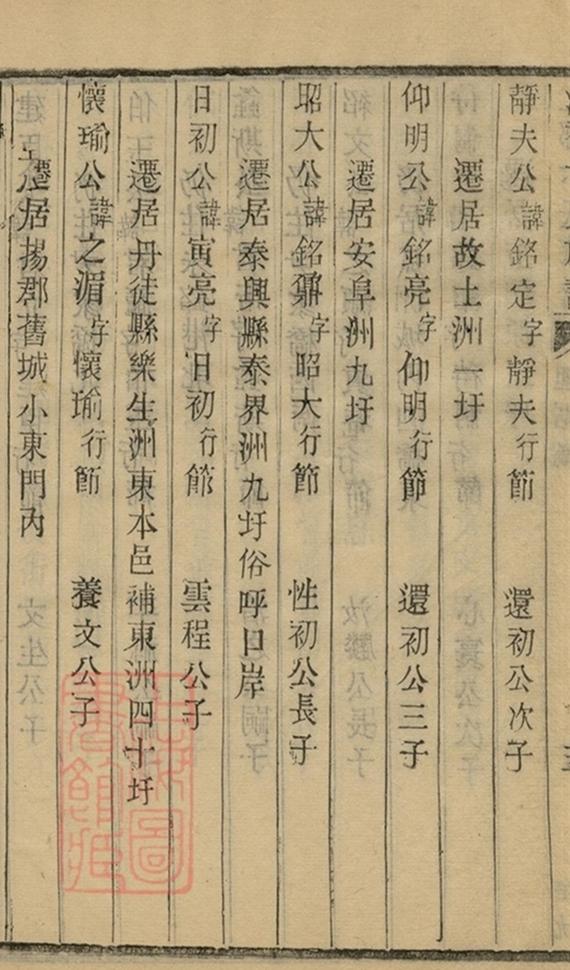 靜夫公諱銘定字靜夫行節 還初公次子
遷居故土洲一圩
仰明公諱銘亮字仰明行節 還初公三子
遷居安阜洲九圩
昭大公諱銘鼐字昭大行節 性初公長子
遷居泰興縣泰界洲九圩俗呼日岸
日初公諱寅亮字日初行節 雲程公子
遷居丹徒縣樂生洲東本邑補東洲四十圩
懷瑜公諱之湄字懷瑜行節 養文公子
遷居揚郡舊城小東門內